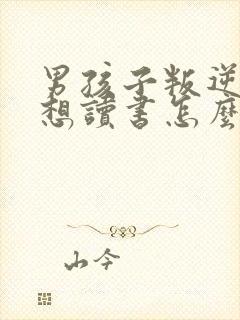 男孩子叛逆
想讀書怎麼
山今